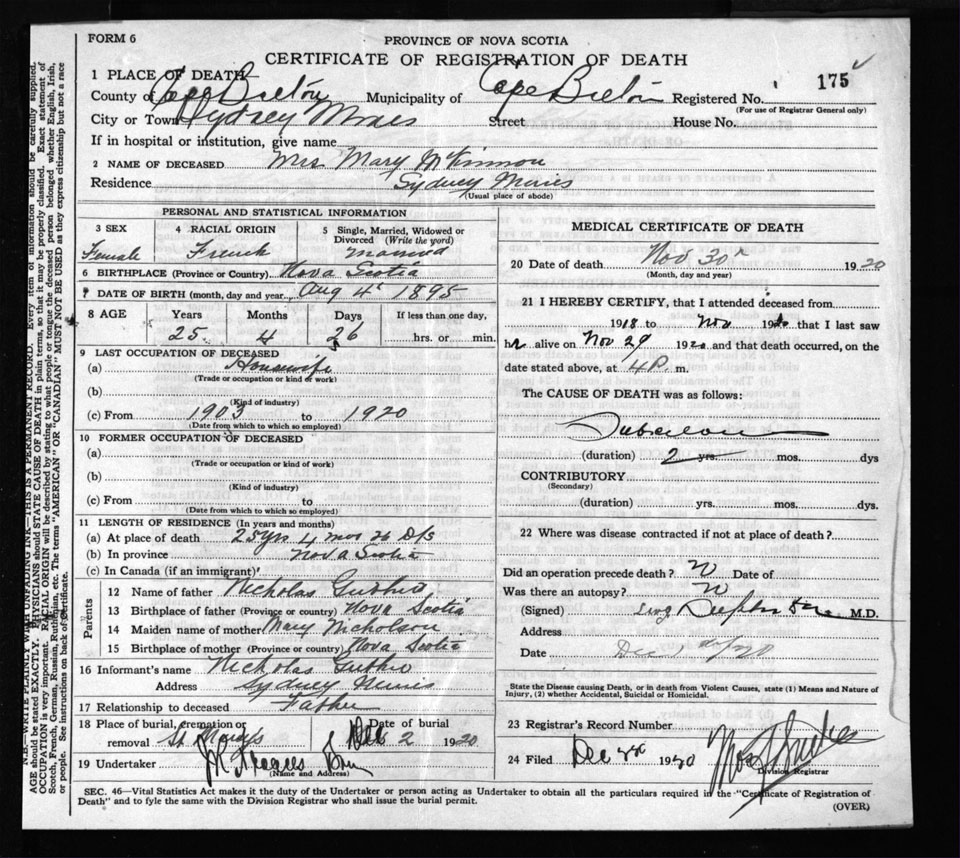 FORM 6
PROVINCE OF NOVA SCOTIA
CERTIFICATE OF REGISTRATION OF DEATH
175
1 PLACE OF DEATH
County of Cape Breton Municipality of Cape Breton Registered No.
(For use of Registrar General only)
City or Town Sydney Mines Street House No.
If in hospital or institution, give name
2 NAME OF DECEASED Mrs Mary McKinnon
Residence Sydney Mines
(Usual place of abode)
PERSONAL AND STATISTICAL INFORMATION
3 SEX
Female
4 RACIAL ORIGIN
French
5 Single, Married, Widowed or
Divorced (Write the word)
Married
6 BIRTHPLACE (Province or Country) Nova Scotia
7 DATE OF BIRTH (month, day and year) Aug 4 1895
8 AGE Years Months Days If less than one day,
25 4 26 hrs. or min.
9 LAST OCCUPATION OF DECEASED
(a) Housewife
(Trade or occupation or kind of work)
(b)
(Kind of industry)
(c) From 1903 to 1920
(Date from which to which so employed)
10 FORMER OCCUPATION OF DECEASED
(a)
(Trade or occupation or kind of work)
(b)
(Kind of industry)
(c) From to
(Date from which to which so employed)
11 LENGTH OF RESIDENCE (In years and months)
(a) At place of death 25 yrs 4 mos 26 Ds
(b) In province Nova Scotia
(c) In Canada (if an immigrant)
Parents
12 Name of father Nicholas
13 Birthplace of father (Province or country) Nova Scotia
14 Maiden name of mother Mary Nicholson
15 Birthplace of mother (Province or country) Nova Scotia
16 Informant's name Nicholas
Address Sydney Mines
17 Relationship to deceased Father
18 Place of burial, cremation or Date of burial
removal St Dec 2 1920
19 Undertaker
(Name and Address)
MEDICAL CERTIFICATE OF DEATH
20 Date of death Nov 30 1920
(Month, day and year)
21 I HEREBY CERTIFY, that I attended deceased from
1918 to Nov 1920 that I last saw
her alive on Nov 29 1920 and that death occurred, on the
date stated above, at 4 P. m.
The CAUSE OF DEATH was as follows:
(duration) 2 yrs. mos. dys
CONTRIBUTORY
(Secondary)
(duration) yrs. mos. dys.
22 Where was disease contracted if not at place of death?
Did an operation precede death? No Date of
Was there an autopsy? No
(Signed) M.D.
Address
Date Dec
State the Disease causing Death, or in death from Violent Causes, state (1) Means and Nature of
Injury, (2) whether Accidental, Suicidal or Homicidal.
23 Registrar's Record Number
24 Filed Dec 1920
Division Registrar
SEC. 46—Vital Statistics Act makes it the duty of the Undertaker or person acting as Undertaker to obtain all the particulars required in the "Certificate of Registration of
Death" and to fyle the same with the Division Registrar who shall issue the burial permit.
(OVER)
N.B.—WRITE PLAINLY WITH UNFADING INK—THIS IS A PERMANENT RECORD. Every item of information should be carefully supplied.
AGE should be stated EXACTLY. PHYSICIANS should STATE CAUSE OF DEATH in plain terms, so that it may be properly classified. Exact statement of
OCCUPATION is very important. RACIAL ORIGIN will be described by stating to what people or tongue the deceased person belonged whether English, Irish,
Scotch, French, German, Russian, Ruthenian, etc. The terms "AMERICAN" OR "CANADIAN" MUST NOT BE USED as they express citizenship but not a race
or people. See instructions on back of Certificate.